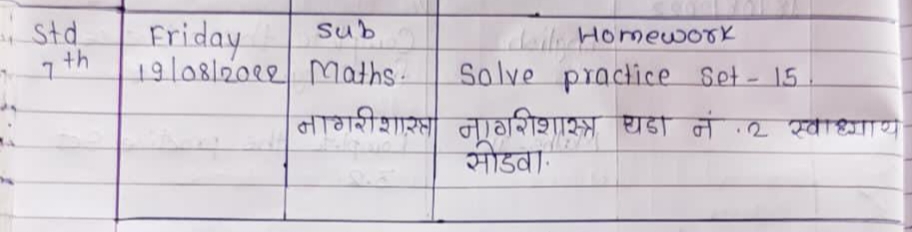 Std Friday Sub Homework
7th 19/08/2022 Maths. Solve practice Set - 15.
नागरीशास्त्र नागरिशास्त्र धडा नं .2 स्वाध्याय
सोडवा.